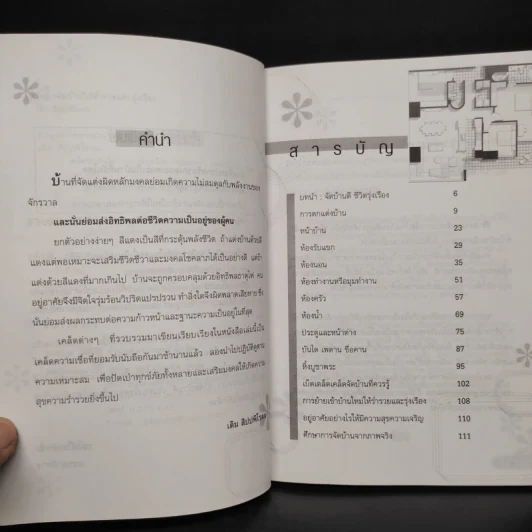 คำนำ
บ้านที่จัดแต่งผิดหลักมงคลย่อมเกิดความไม่สมดุลกับพลังงานของ
จักรวาล
และนั่นย่อมส่งอิทธิพลต่อชีวิตความเป็นอยู่ของผู้คน
ยกตัวอย่างง่ายๆ สีแดงเป็นสีที่กระตุ้นพลังชีวิต ถ้าแต่งบ้านด้วยสี
แดงแต่พอเหมาะจะเสริมชีวิตชีวาและมงคลโชคลาภได้เป็นอย่างดี แต่ถ้า
แต่งด้วยสีแดงที่มากเกินไป บ้านจะถูกครอบคลุมด้วยอิทธิพลธาตุไฟ คน
อยู่อาศัยจึงมีจิตใจรุ่มร้อนวิปริตแปรปรวน ทำสิ่งใดจึงผิดพลาดเสียหาย ซึ่ง
นั่นย่อมส่งผลกระทบต่อความก้าวหน้าและฐานะความเป็นอยู่ในที่สุด
เคล็ดต่างๆ ที่รวบรวมมาเขียนเรียบเรียงในหนังสือเล่มนี้เป็น
เคล็ดความเชื่อที่ยอมรับนับถือกันมาช้านานแล้ว ลองนำไปปฏิบัติดูตาม
ความเหมาะสม เพื่อปัดเป่าทุกข์ภัยทั้งหลายและเสริมมงคลให้เกิดความ
สุขความร่ำรวยยิ่งขึ้นไป
เติม
สารบัญ
บทนำ : จัดบ้านดี ชีวิตรุ่งเรือง 6
การตกแต่งบ้าน 9
หน้าบ้าน 23
ห้องรับแขก 29
ห้องนอน 35
ห้องทำงานหรือมุมทำงาน 51
ห้องครัว 57
ห้องน้ำ 69
ประตูและหน้าต่าง 75
บันได เพดาน ขื่อคาน 87
หิ้งบูชาพระ 95
เบ็ดเตล็ดเคล็ดจัดบ้านที่ควรรู้ 102
การย้ายเข้าบ้านใหม่ให้ร่ำรวยและรุ่งเรือง 108
อยู่อาศัยอย่างไรให้มีความสุขความเจริญ 110
ศึกษาการจัดบ้านจากภาพจริง 111